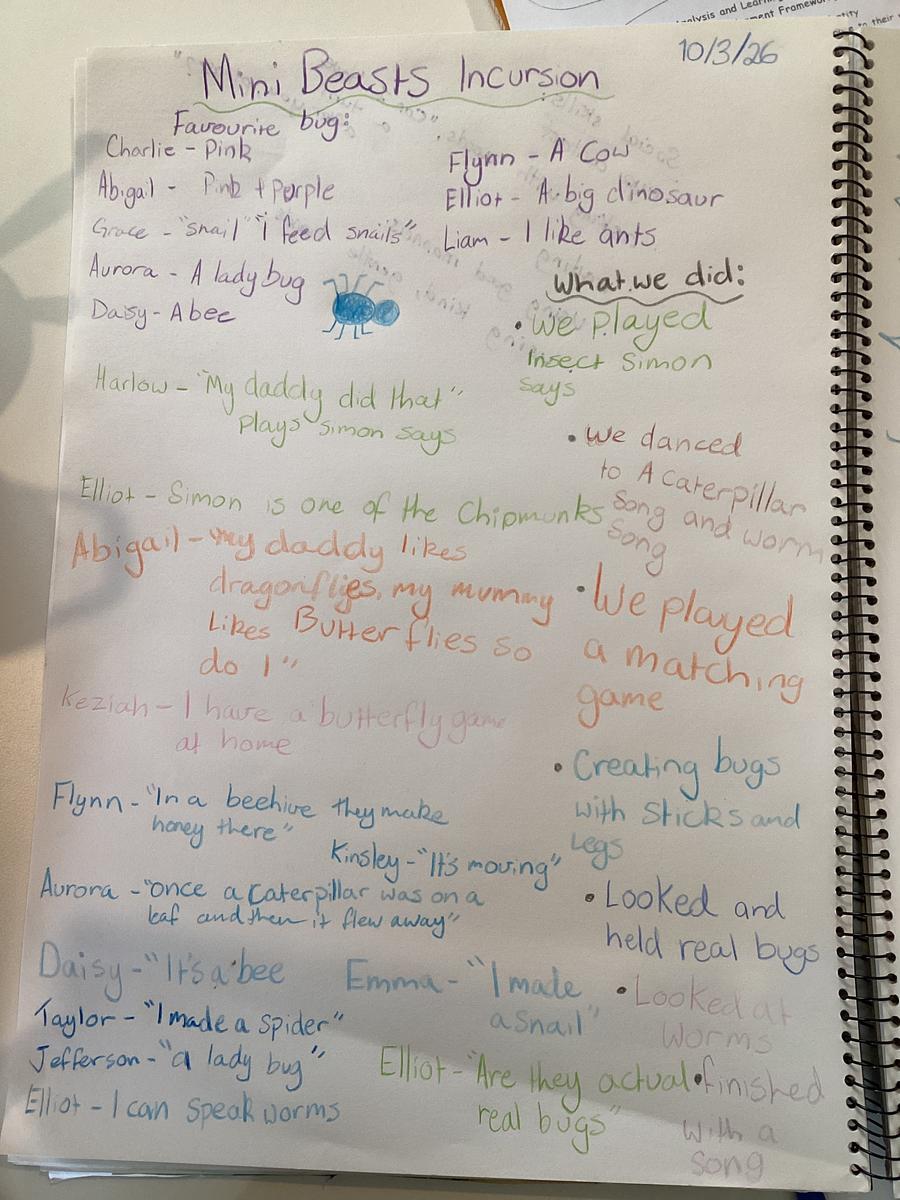 Analysis and Learning
ment Framework
to their
10/3/26
Mini Beasts Incursion
Favourite bug:
Charlie - Pink
Abigail - Pink + purple
Grace - "snail" "I feed snails"
Aurora - A lady bug
Daisy - A bee
Flynn - A Cow
Elliot - A big dinosaur
Liam - I like ants
Harlow - "My daddy did that"
plays simon says
Elliot - Simon is one of the Chipmunks
Abigail - "my daddy likes
dragonflies, my mummy
Likes Butterflies so
do I"
Keziah - I have a butterfly game
at home
Flynn - "In a beehive they make
honey there"
Kinsley - "It's moving"
Aurora - "once a caterpillar was on a
leaf and then it flew away"
Daisy - "It's a bee
Emma - "I made
a snail"
Taylor - "I made a spider"
Jefferson - "a lady bug"
Elliot - I can speak worms
Elliot - "Are they actual
real bugs"
What we did:
• We played
insect Simon
says
• We danced
to A caterpillar
Song and worm
Song
• We played
a matching
game
• Creating bugs
with sticks and
Legs
• Looked and
held real bugs
• Looked at
worms
• finished
with a
song